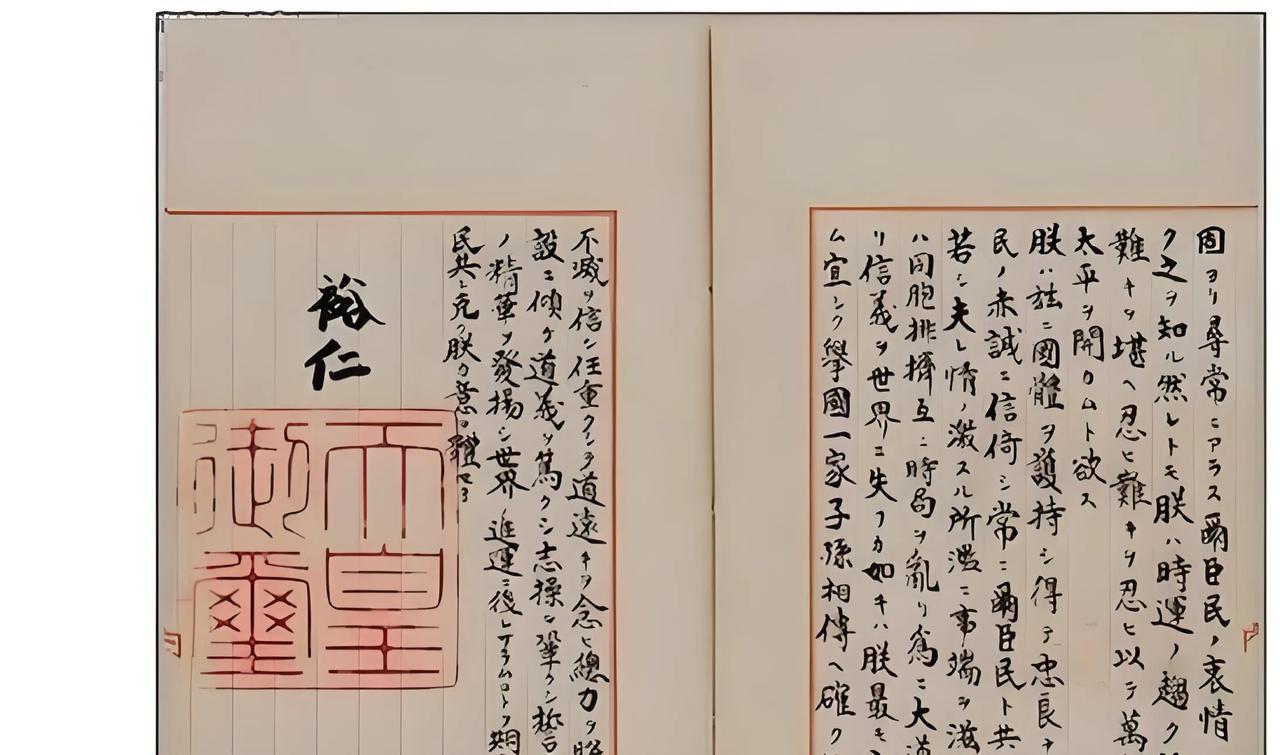 固ヨリ尋常ニアラス爾臣民ノ衷情
ク之ヲ知ル然レトモ朕ハ時運ノ趨ク
難キヲ堪ヘ忍ヒ難キヲ忍ヒ以テ萬
太平ヲ開カムト欲ス
朕ハ茲ニ國體ヲ護持シ得テ忠良ナ
民ノ赤誠ニ信倚シ常ニ爾臣民ト共
若シ夫レ情ノ激スル所濫ニ事端ヲ滋
ハ同胞排擠互ニ時局ヲ亂リ為ニ大道
リ信義ヲ世界ニ失フカ如キハ朕最モ
ム宜シク擧國一家子孫相傳ヘ確ク
不滅ヲ信シ任重クシテ道遠キヲ念ヒ總力ヲ將
設ニ傾ケ道義ヲ篤クシ志操ヲ鞏クシ誓
ノ精華ヲ發揚シ世界ノ進運ニ後レサラムコトヲ期
民其レ克ク朕カ意ヲ體セヨ
裕仁
天皇
御璽